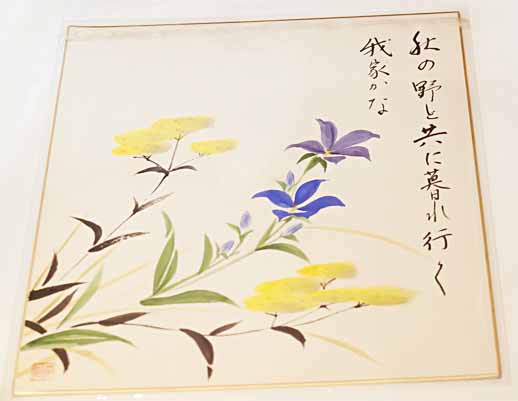 秋の野と共に暮れ行く
我家かな